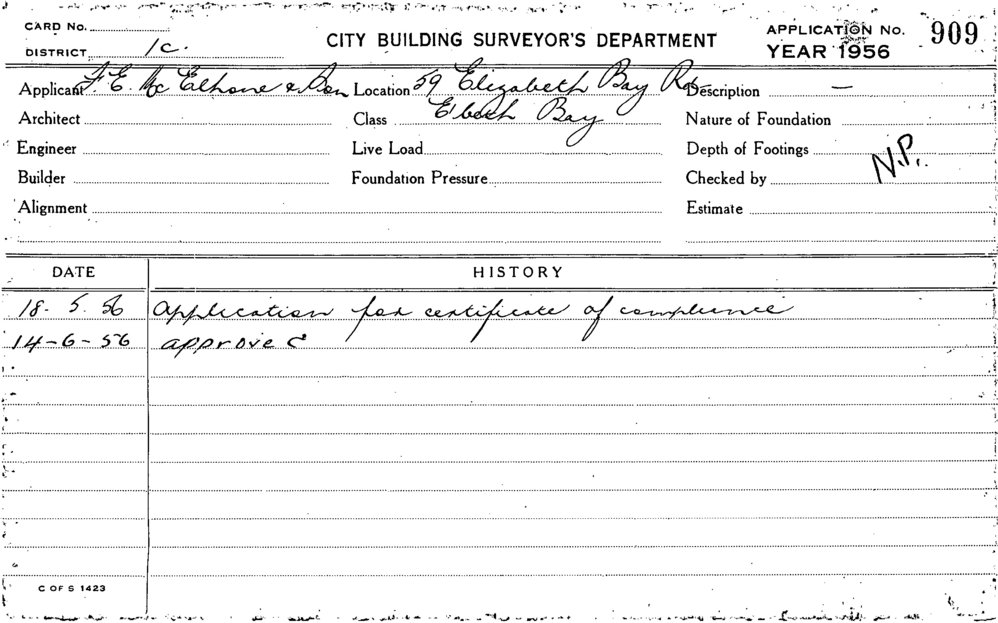 CARD No.
DISTRICT 1c.
CITY BUILDING SURVEYOR'S DEPARTMENT
APPLICATION No. 909
YEAR 1956
Applicant F. E. Mc Elhone & Son Location 59 Elizabeth Bay Rd Description —
Architect Class E'beth Bay Nature of Foundation
Engineer Live Load Depth of Footings
Builder Foundation Pressure Checked by N.P.
Alignment Estimate
DATE HISTORY
18. 5. 56 Application for certificate of compliance
14-6-56 approved
C OF S 1423